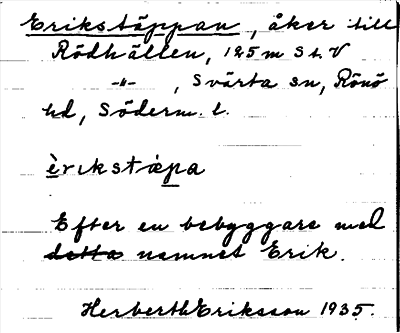 Erikstäppan, åker till
Rödhällen, 125 m St. V
-"-, Svärta sn, Rönö
hd, Söderm. l.
èrikstàpa
Efter en bebyggare med
detta namnet Erik.
Herberth Eriksson 1935.